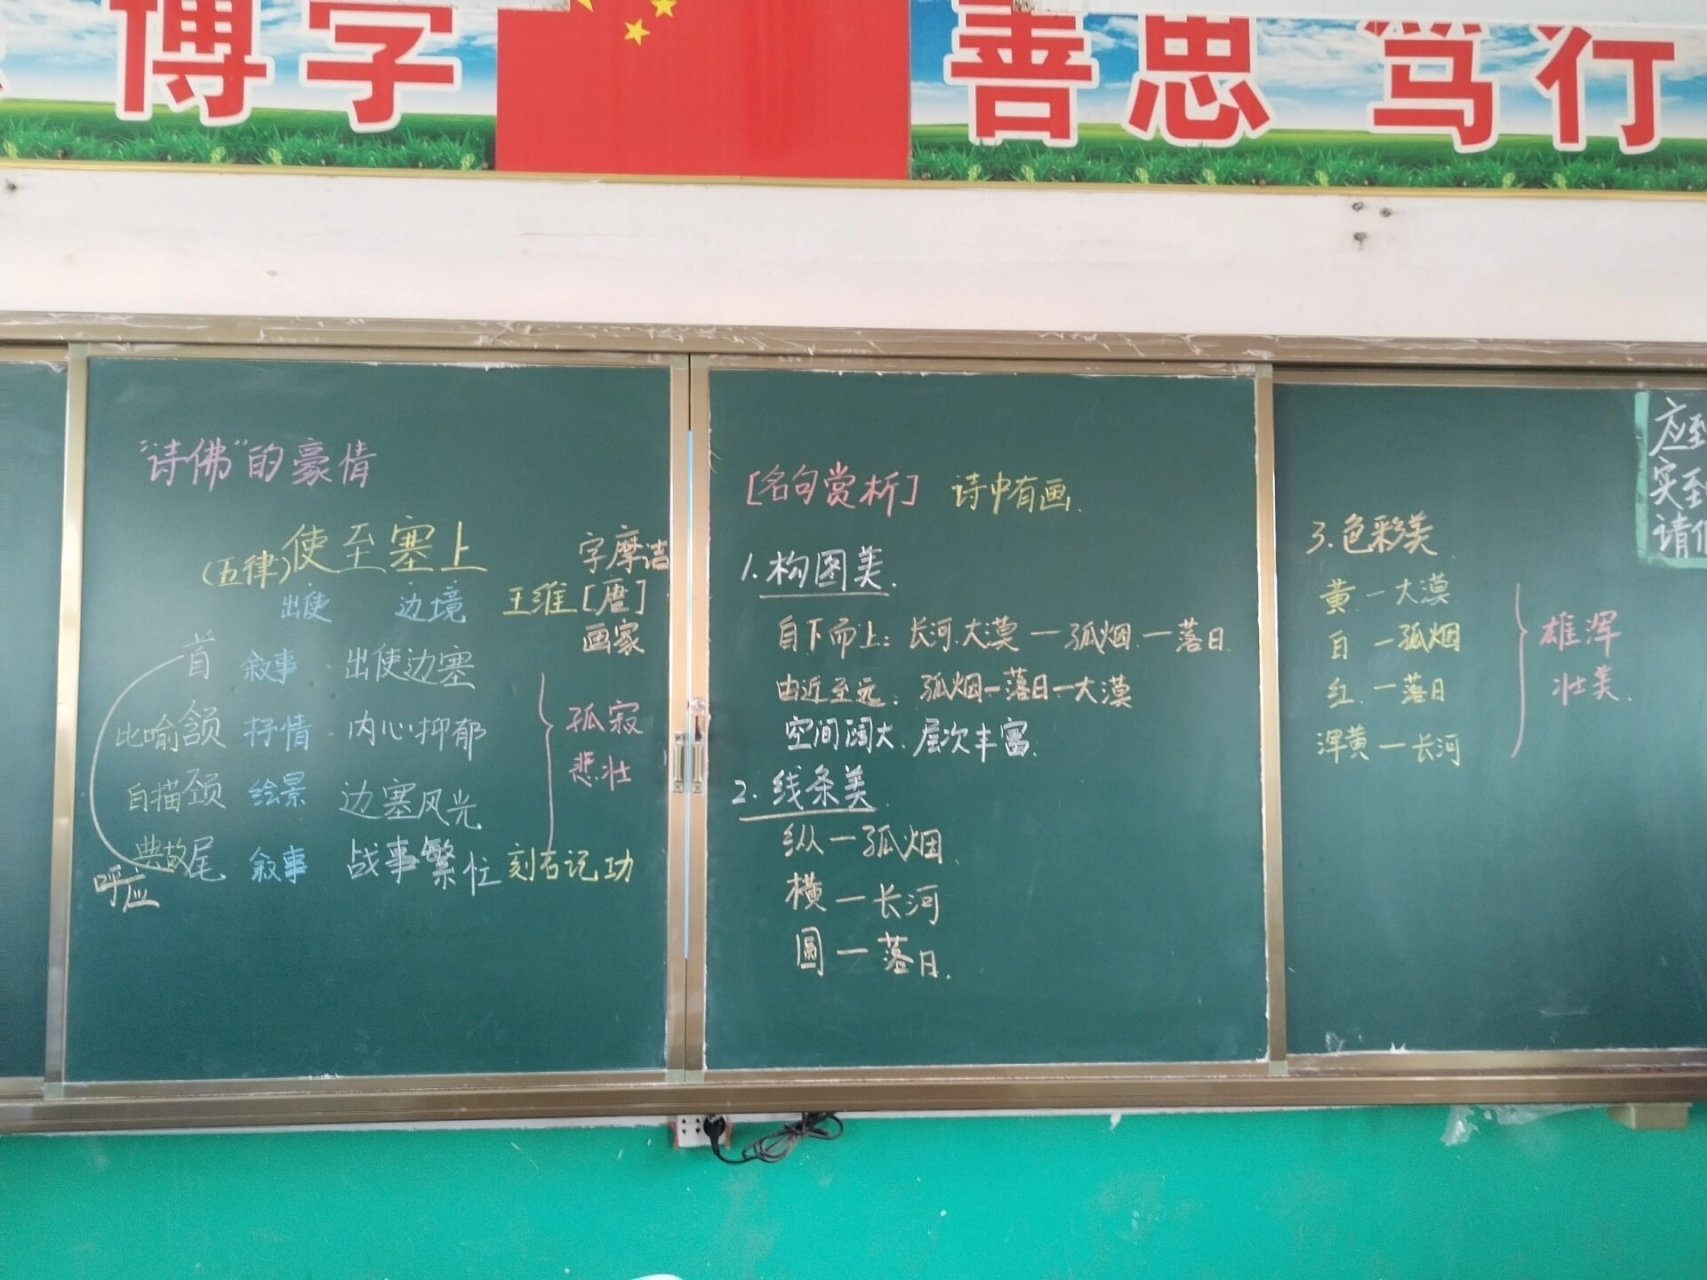 博学
善思 笃行
“诗佛”的豪情
(五律)使至塞上
出使 边境
字摩诘
王维[唐]
画家
首 叙事 · 出使边塞
比喻颔 抒情 · 内心抑郁
白描颈 绘景 边塞风光
典故尾 叙事 战事繁忙 刻石记功
呼应
孤寂
悲壮
[名句赏析] 诗中有画.
1.构图美.
自下而上: 长河.大漠—孤烟—落日.
由近至远: 孤烟—落日—大漠
空间阔大.层次丰富.
2.线条美
纵—孤烟.
横—长河
圆—落日.
3.色彩美
黄—大漠
白—孤烟
红—落日
浑黄—长河
雄浑
壮美.
应到
实到
请假